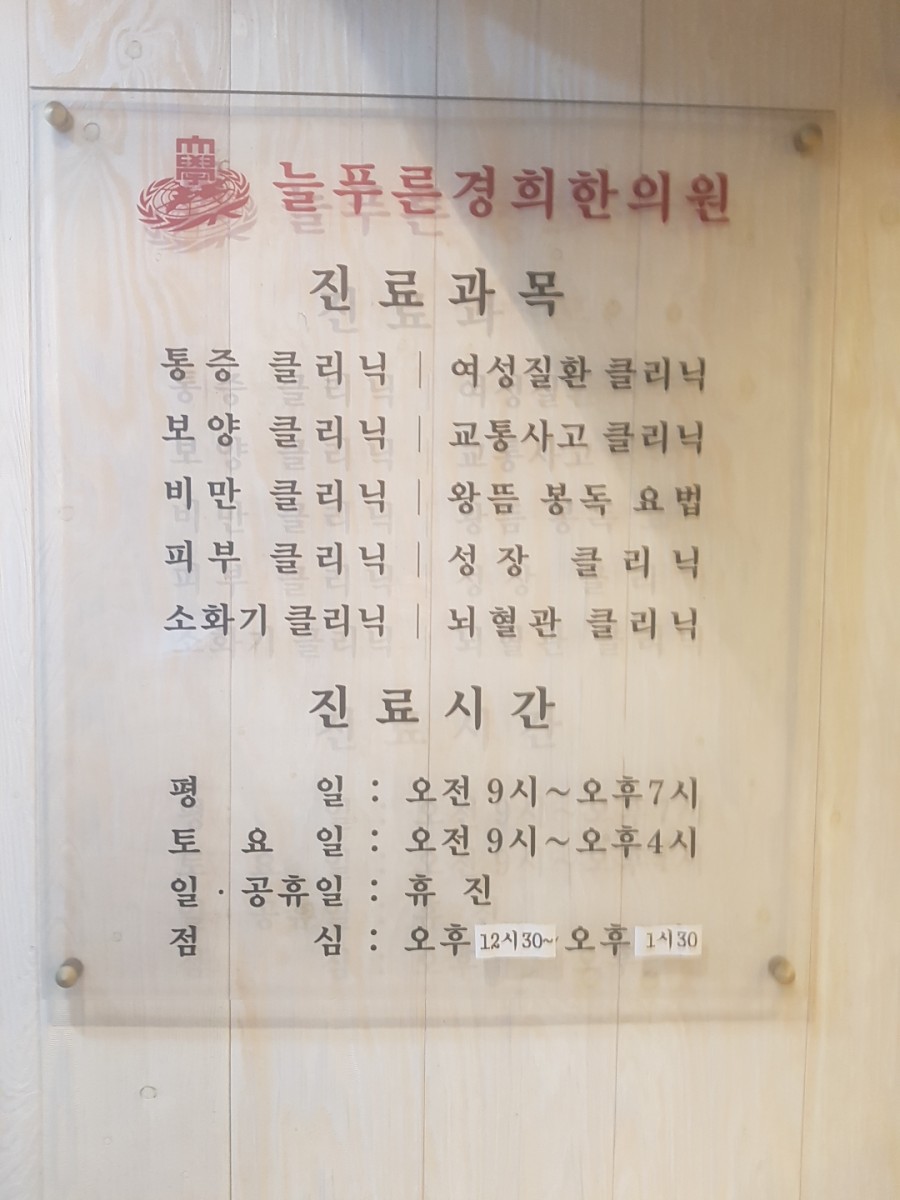 大學
늘푸른경희한의원
진료과목
통증 클리닉 | 여성질환 클리닉
보양 클리닉 | 교통사고 클리닉
비만 클리닉 | 왕뜸 봉독 요법
피부 클리닉 | 성장 클리닉
소화기 클리닉 | 뇌혈관 클리닉
진료시간
평일 : 오전 9시~오후7시
토요일 : 오전 9시~오후4시
일·공휴일 : 휴진
점심 : 오후 12시30~ 오후 1시30